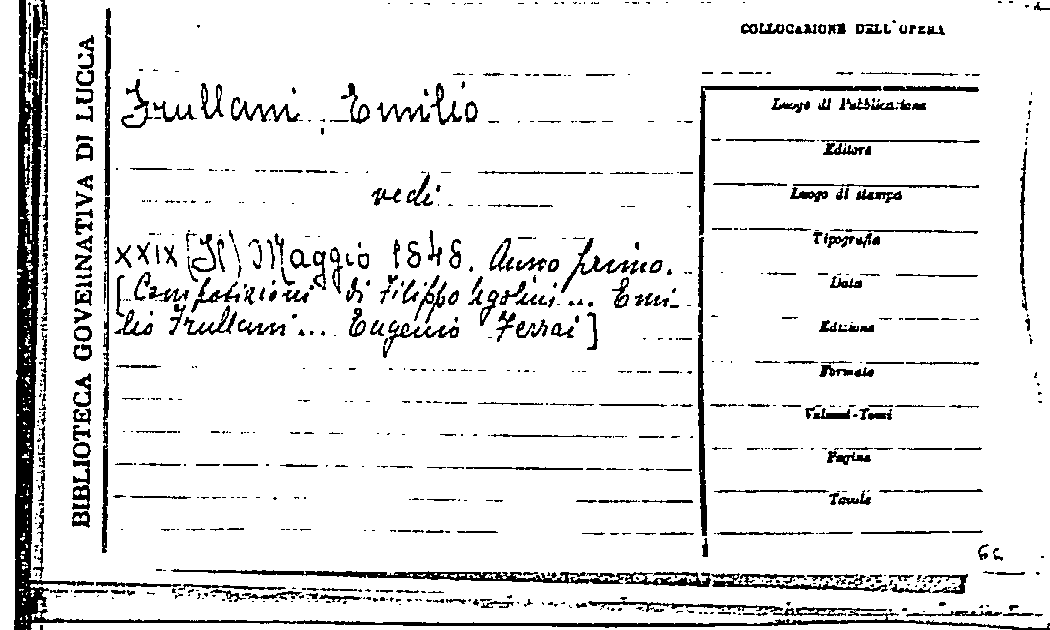 BIBLIOTECA GOVERNATIVA DI LUCCA
COLLOCAZIONE DELL'OPERA
Frullani, Emilio
vedi
XXIX (Il) Maggio 1848. Anno primo.
[Composizioni di Filippo Ugolini... Emi-
lio Frullani... Eugenio Ferrai]
Luogo di Pubblicazione
Editore
Luogo di stampa
Tipografia
Data
Edizione
Formato
Volumi-Tomi
Pagine
Tavole